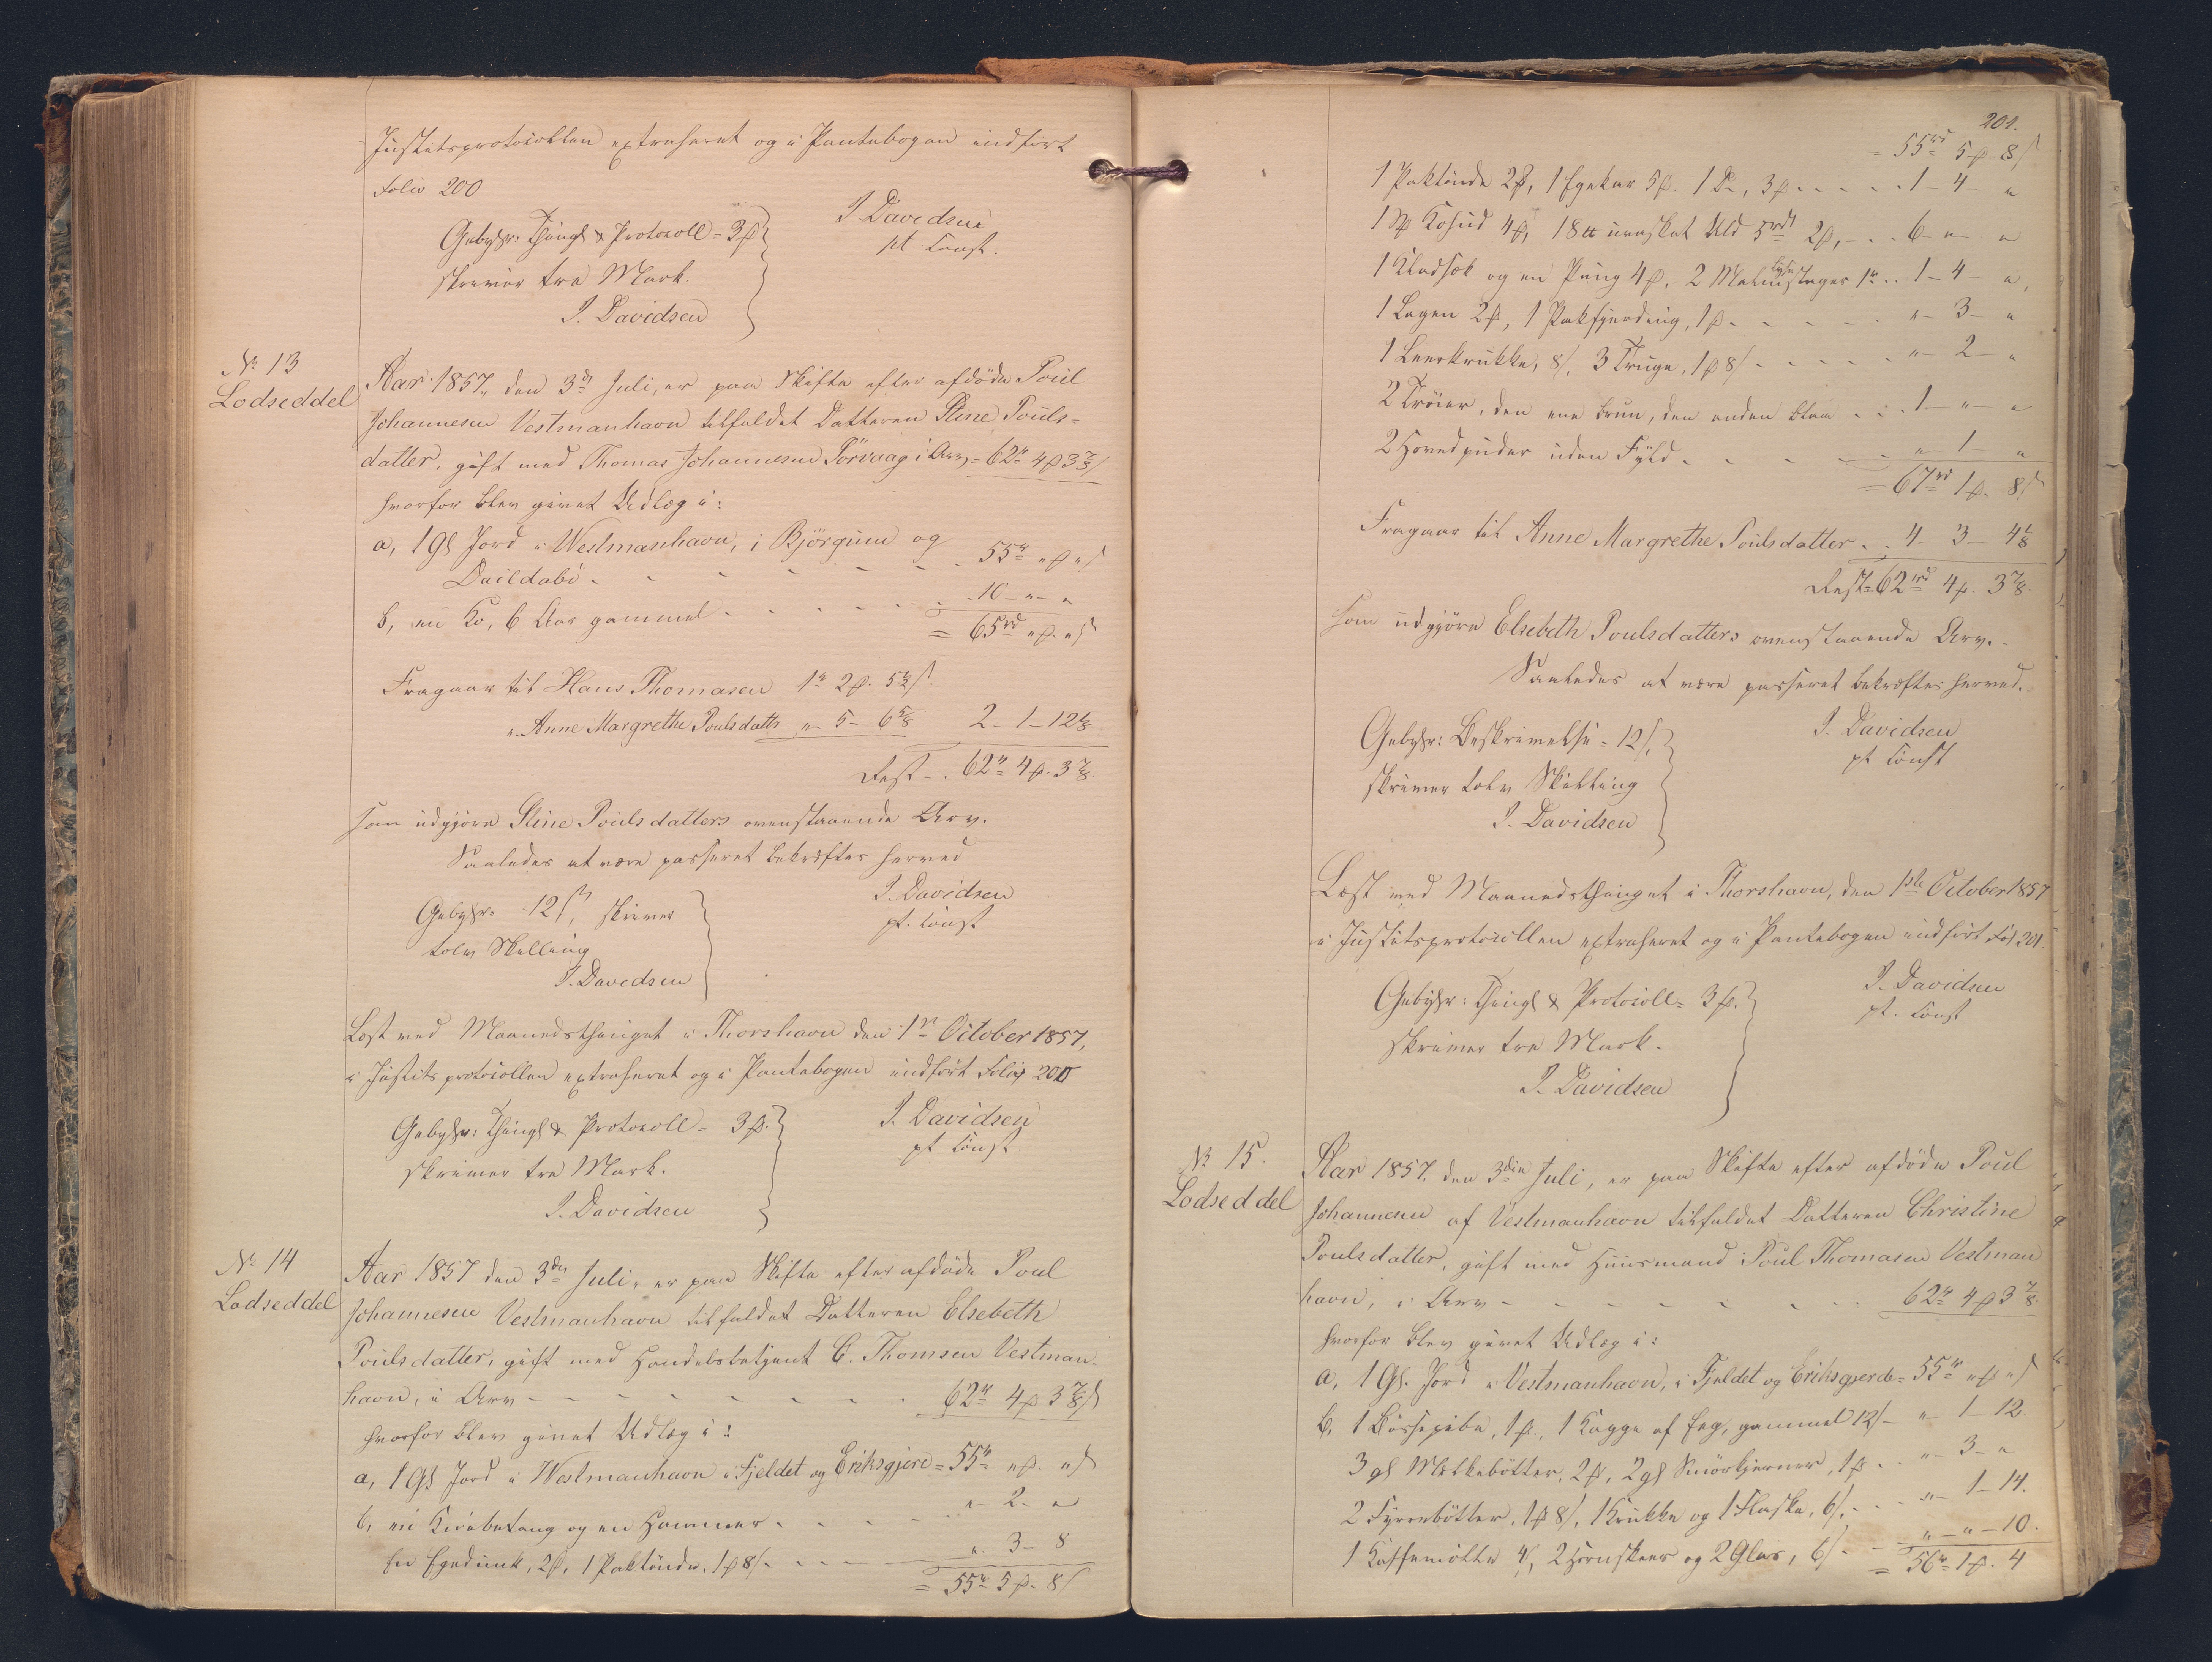 Justitsprotocollen extraheret og i Pantebogen indført
Folio 200
Gebyhr: Thingl & Protocoll = 3 ß
skriver tre Mark.
J. Davidsen
J. Davidsen
pt Const.
No 13
Lodseddel
Aar 1857, den 3de Juli, er paa Skifte efter afdøde Poul
Johannesen Vestmanhavn tilfaldet Datteren Stine Pouls=
datter, gift med Thomas Johannesen Sörvaag i Arv = 62 rd 4 ß 3 7/8 s
hvorfor blev givet Udlæg i:
a, 1 Gl Jord i Westmanhavn, i Björgum og
Duildabö - - - - - - 55 rd " ß " s
b, en Ko, 6 Aar gammel - - - - - 10 - " - "
= 65 rd " ß. " s
Fragaar til Hans Thomasen 1 rd 2 ß. 5 1/2 s.
" Anne Margrethe Poulsdattr " - 5 - 6 5/8 2 - 1 - 12 1/8
Rest - . 62 rd 4 ß. 3 7/8.
som udgjøre Stine Poulsdatters ovenstaaende Arv.
Saaledes at være passeret bekræftes herved
Gebyhr = 12 s, skriver
tolv Skilling
J. Davidsen
J. Davidsen
pt. Const
Læst ved Maanedsthinget i Thorshavn den 1st October 1857,
i Justitsprotocollen extraheret og i Pantebogen indført Folio 200
Gebyhr: Thingl & Protocoll = 3 ß.
skriver tre Mark.
J. Davidsen
J. Davidsen
pt Const
No 14
Lodseddel
Aar 1857 den 3die Juli, er paa Skifte efter afdøde Poul
Johannesen Vestmanhavn tilfaldet Datteren Elsebeth
Poulsdatter, gift med Handelsbetjent C. Thomsen Vestman-
havn, i Arv - - - - - - - 62 rd 4 ß 3 7/8 s
hvorfor blev givet Udlæg i:
a, 1 Gl Jord i Westmanhavn i Fjeldet og Eriksgjere = 55 rd " ß. " s
b, en Knibetang og en Hammer - - - - " - 2 - "
en Egedunk, 2 ß, 1 Paktönde, 1 ß 8 s - - - - " - 3 - 8
= 55 rd 5 ß - 8 s
201.
55 rd 5 ß 8 s
1 Paktönde 2 ß, 1 Egekar 5 ß. 1 Do, 3 ß - - - - 1 - 4 - "
1 Kohud 4 ß, 18 uvasket Uld 5 rd 2 ß, - - - 6 - " - "
1 Kladsæk og en Pung 4 ß, 2 Malmlysestager 1 rd - - 1 - 4 - "
1 Lagen 2 ß, 1 Pakfjerding, 1 ß - - - - - " - 3 - "
1 Leerkrukke, 8 s, 3 Truge, 1 ß 8 s - - - - - " - 2 - "
2 Tröier, den ene brun, den anden blaa - - - 1 - " - "
2 Hovedpuder uden Fyld - - - - - " - 1 - "
= 67 rd 1 ß. 8 s
Fragaar til Anne Margrethe Poulsdatter - - 4 - 3 - 4 1/8
Rest = 62 rd 4 ß. 3 7/8.
som udgjøre Elsebeth Poulsdatters ovenstaaende Arv. -
Saaledes at være passeret bekræftes herved. -
Gebyhr: Beskrivelse = 12 s,
skriver tolv Skilling
J. Davidsen
J. Davidsen
pt Const
Læst ved Maanedsthinget i Thorshavn, den 1ste October 1857
i Justitsprotocollen extraheret og i Pantebogen indført Fol 201
Gebyhr: Thingl & Protocoll = 3 ß.
skriver tre Mark.
J. Davidsen
J. Davidsen
pt. Const
No 15.
Lodseddel
Aar 1857, den 3die Juli, er paa Skifte efter afdøde Poul
Johannesen af Vestmanhavn tilfaldet Datteren Christine
Poulsdatter, gift med Huusmand Poul Thomasen Vestman
havn, i Arv - - - - - - - 62 rd 4 ß 3 7/8.
hvorfor blev givet Udlæg i:
a, 1 Gl. Jord i Vestmanhavn, i Fjeldet og Eriksgjerde = 55 rd " ß " s
b, 1 Bössepibe, 1 ß., 1 Kagge af Eeg, gammel 12 s - " - 1 - 12.
3 gl Melkebötter, 2 ß, 2 gl Smörkjerner, 1 ß - - " - 3 - "
2 Fyrrebötter, 1 ß 8 s, 1 Krukke og 1 Flaske, 6 s, - - " - 1 - 14.
1 Kaffemölle 4 s, 2 Hornskeer og 2 Glas, 6 s - - " - " - 10.
= 56 rd 1 ß. 4